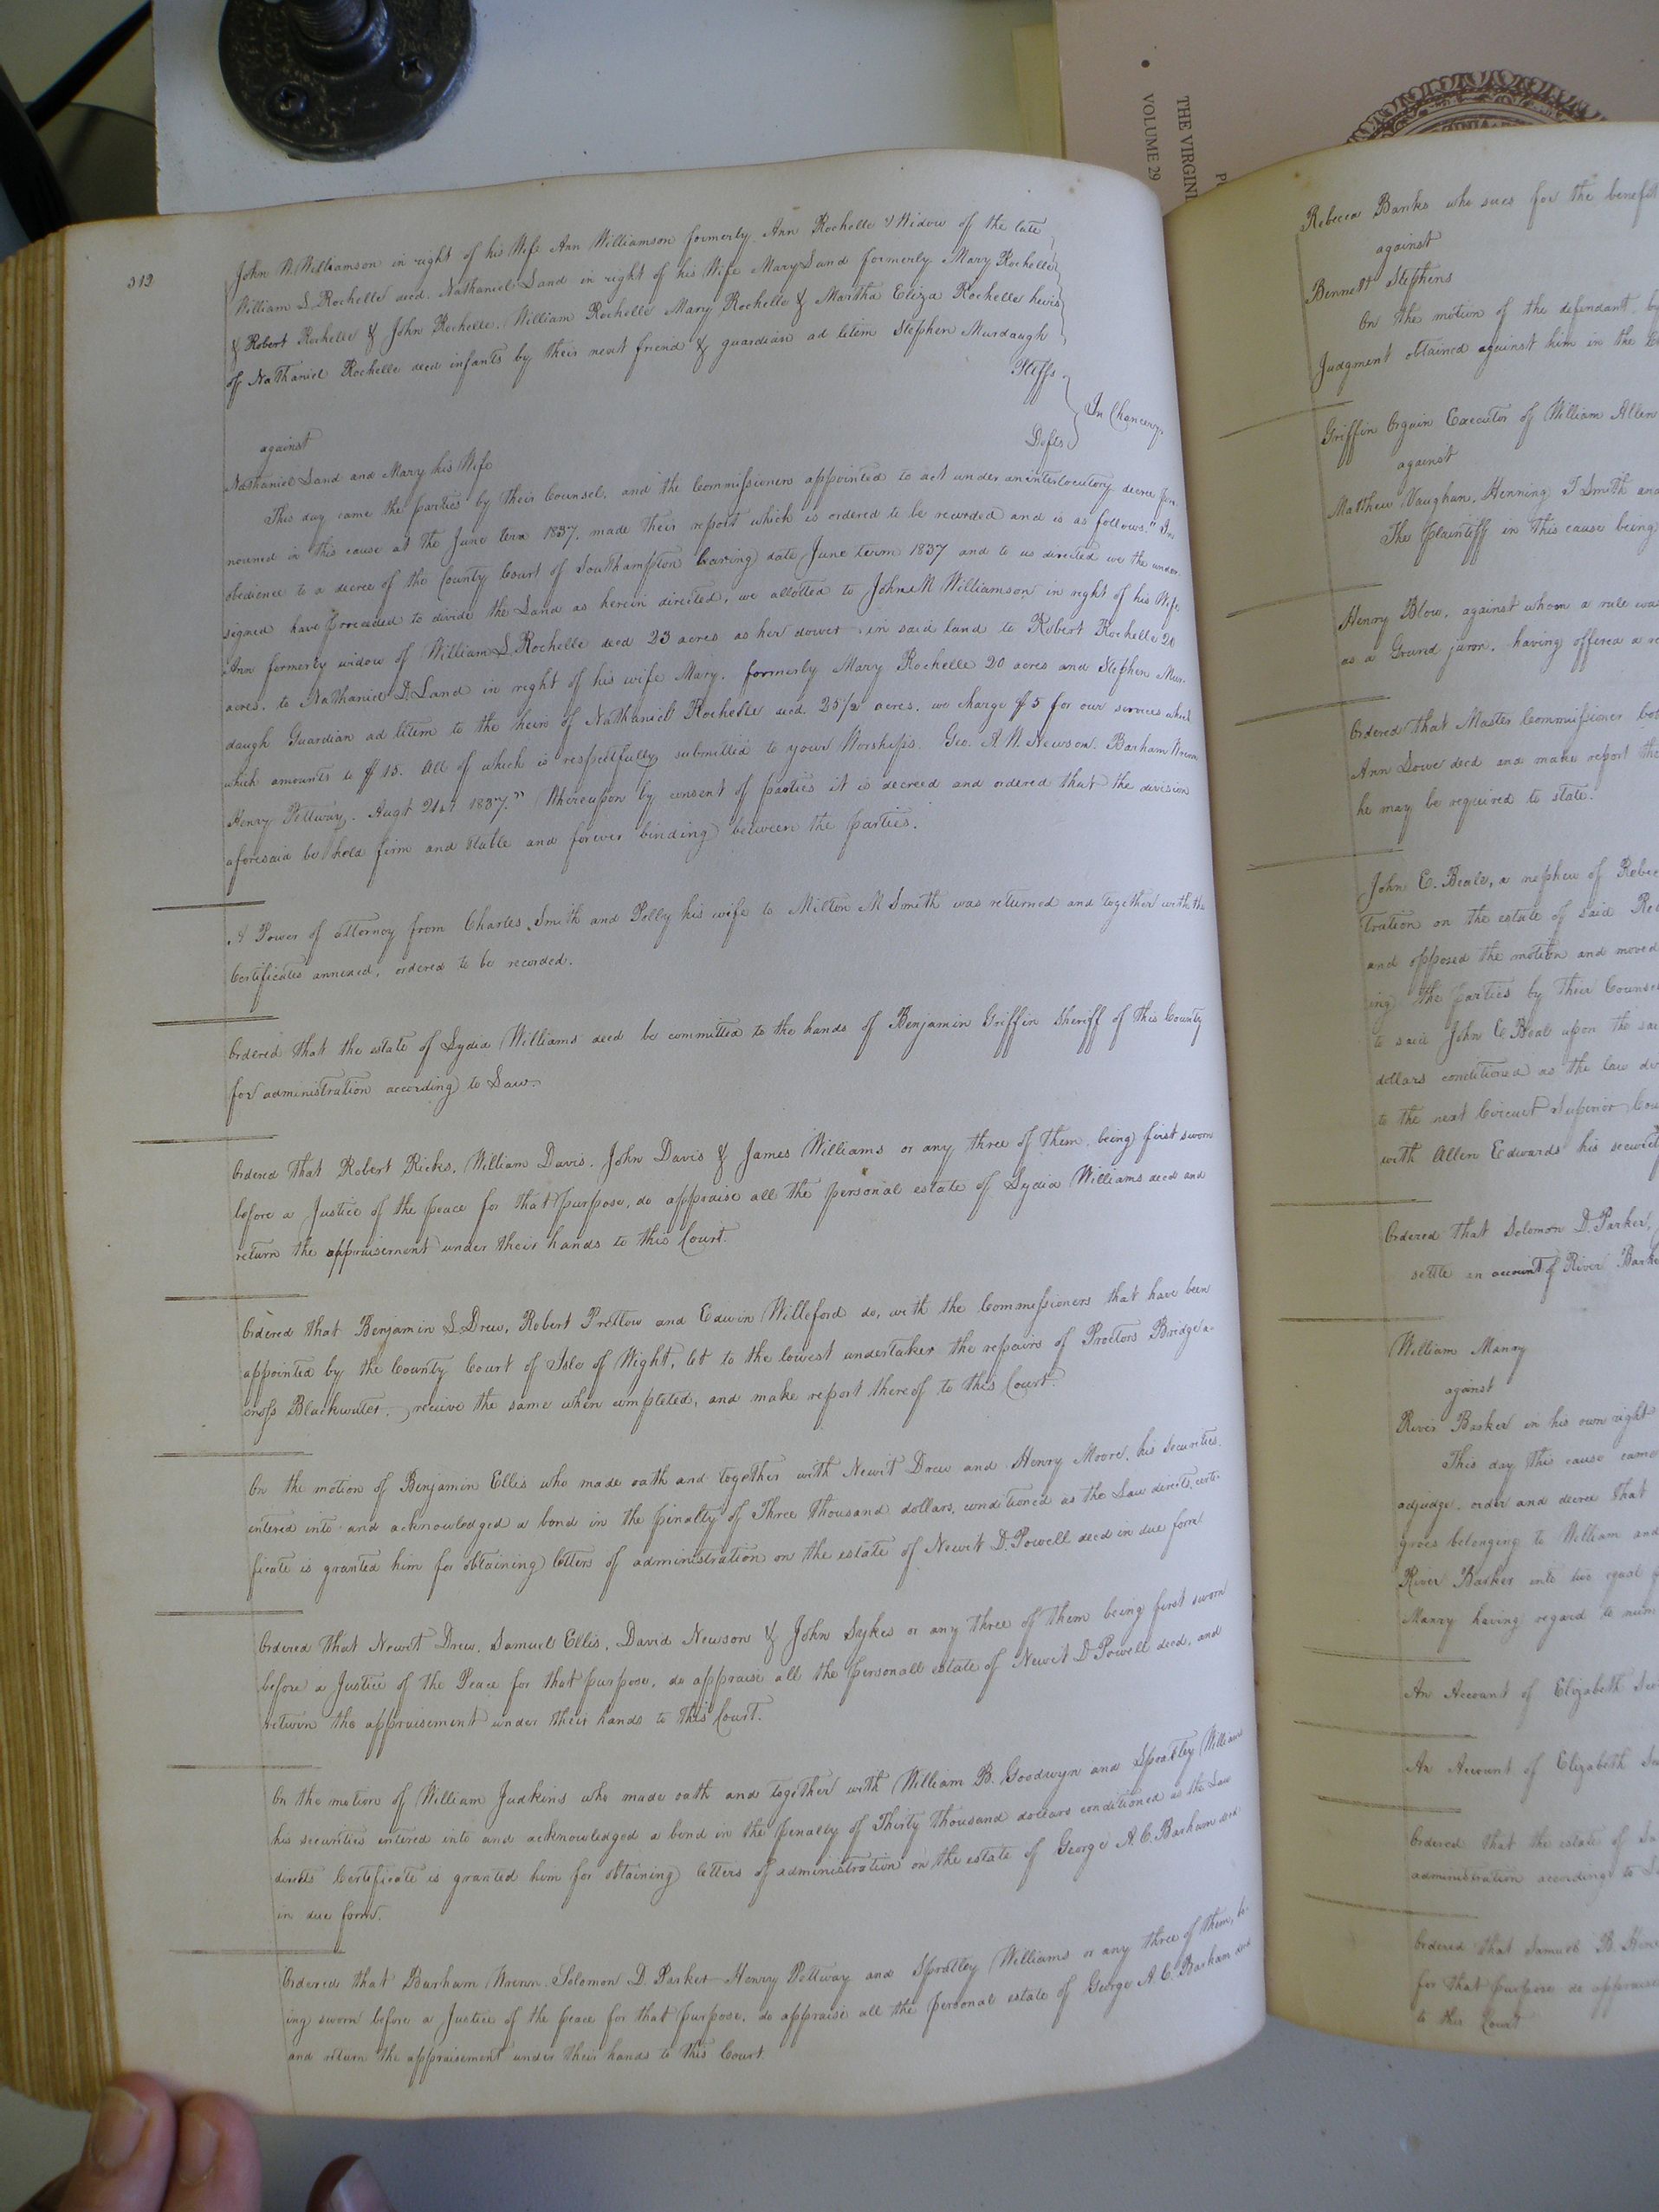 THE VIRGINI
VOLUME 29
312
John M. Williamson in right of his Wife Ann Williamson formerly Ann Rochelle & Widow of the late
William L. Rochelle decd. Nathaniel Land in right of his Wife Mary Land formerly Mary Rochelle
& Robert Rochelle & John Rochelle, William Rochelle Mary Rochelle & Martha Eliza Rochelle heirs
of Nathaniel Rochelle decd infants by their next friend & guardian ad litem Stephen Murdaugh
Pltffs
against
In Chancery
Defts
Nathaniel Land and Mary his Wife
This day came the parties by their Counsel, and the Commissioners appointed to act under an interlocutory decree pro-
nounced in this cause at the June term 1837, made their report which is ordered to be recorded and is as follows. "In
obedience to a decree of the County Court of Southampton bearing date June term 1837 and to us directed we the under-
signed have proceeded to divide the Land as herein directed, we allotted to John M Williamson in right of his Wife
Ann formerly widow of William L. Rochelle decd 23 acres as her dower in said land to Robert Rochelle 20
acres, to Nathaniel D. Land in right of his wife Mary, formerly Mary Rochelle 20 acres and Stephen Mur-
daugh Guardian ad litem to the heirs of Nathaniel Rochelle decd. 25½ acres. we charge $5 for our services
which amounts to $15. All of which is respectfully submitted to your Worships. Geo. A. W. Newsom. Barham Wrenn
Henry Pettway. Augt 21st 1837." Whereupon by consent of parties it is decreed and ordered that the division
aforesaid be held firm and stable and forever binding between the parties.
A Power of attorney from Charles Smith and Polly his wife to Milton M Smith was returned and together with the
Certificates annexed, ordered to be recorded.
Ordered that the estate of Lydia Williams decd be committed to the hands of Benjamin Griffin Sheriff of this County
for administration according to Law.
Ordered that Robert Ricks, William Davis, John Davis & James Williams or any three of them, being first sworn
before a Justice of the peace for that purpose, do appraise all the personal estate of Lydia Williams decd and
return the appraisement under their hands to this Court.
Ordered that Benjamin L Drew, Robert Pretlow and Edwin Willeford do, with the Commissioners that have been
appointed by the County Court of Isle of Wight, let to the lowest undertaker the repairs of Proctors Bridge a-
cross Blackwater, receive the same when completed, and make report thereof to this Court.
On the motion of Benjamin Ellis who made oath and together with Newit Drew and Henry Moore, his securities,
entered into and acknowledged a bond in the penalty of Three thousand dollars, conditioned as the Law directs, certi-
ficate is granted him for obtaining letters of administration on the estate of Newit D. Powell decd in due form
Ordered that Newit Drew, Samuel Ellis, David Newsom & John Sykes or any three of them being first sworn
before a Justice of the Peace for that purpose, do appraise all the personall estate of Newit D Powell decd, and
return the appraisement under their hands to this Court.
On the motion of William Judkins who made oath and together with William B. Goodwyn and Spratley Williams
his securities entered into and acknowledged a bond in the penalty of Thirty thousand dollars conditioned as the Law
directs Certificate is granted him for obtaining letters of administration on the estate of George A. C. Barham decd
in due form.
Ordered that Barham Wrenn, Solomon D. Parker Henry Pettway and Spratley Williams or any three of them, be-
ing sworn before a Justice of the peace for that purpose, do appraise all the personal estate of George A. C. Barham decd
and return the appraisement under their hands to this Court.
Rebecca Banks who sues for the benefit
against
Bennett Stephens
On the motion of the defendant, by
Judgment obtained against him in the
Griffin Orgain Executor of William Allen
against
Matthew Vaughan, Henning T Smith and
The Plaintiff in this cause being
Henry Blow, against whom a rule was
as a Grand juror, having offered a
Ordered that Master Commissioner
Ann Dowe decd and make report
he may be required to state.
John E. Beale, a nephew of
tration on the estate of said
and opposed the motion and moved
ing the parties by their Counsel
to said John E Beale upon the
dollars conditioned as the law
to the next Circuit Superior
with Allen Edwards his security
Ordered that Solomon D. Parker,
settle an account of River
William Manry
against
River Barker in his own right
This day this cause came
adjudge, order and decree that
groes belonging to William and
River Barker into two equal
Manry having regard to
An Account of Elizabeth
An Account of Elizabeth
Ordered that the estate of
administration according to
Ordered that Samuel B.
for that purpose do appraise
to this Court